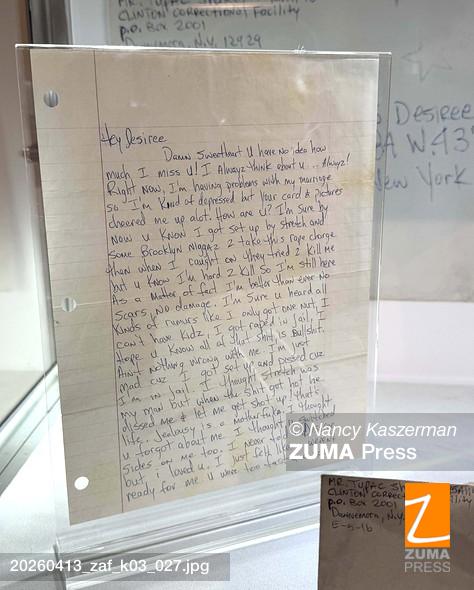 CLINTON CORRECTIONAL FACILITY
P.O. BOX 2001
Dannemora, N.Y. 12929
Desiree
W 43
New York
Hey Desiree
Damn Sweetheart U have No idea how
much I miss u! I Alwayz think about u... Alwayz!
Right Now, I'm having problems with my marriage
so I'm Kind of depressed but your card & pictures
cheered me up alot. How are u? I'm Sure by
Now u Know I got set up by stretch and
some Brooklyn Niggaz 2 take this rape charge
than when I caught on they tried 2 Kill me
but u Know I'm hard 2 Kill So I'm still here
As a Matter of fact I'm better than ever No
Scars, No damage. I'm Sure u heard all
Kinds of rumors like I only got one Nut, I
can't have Kidz, I got raped in Jail. I
Hope u Know all of that shit is Bullshit.
Ain't Nothing wrong with me I'm just
mad cuz I got set up and
I'm in jail. I thought Stretch was
my man but when the Shit got hot he
dissed me & let me get shot up! that's
life. Jealousy is a
u forgot about me. I thought u
sides on me too. I never
but, I loved u. I just felt like
ready for me U were too
© Nancy Kaszerman
ZUMA Press
MR. TUPAC
CLINTON
P.O. BOX 2001
Dannemora, N.Y.
E-5-16
Z
ZUMA
PRESS
20260413_zaf_k03_027.jpg